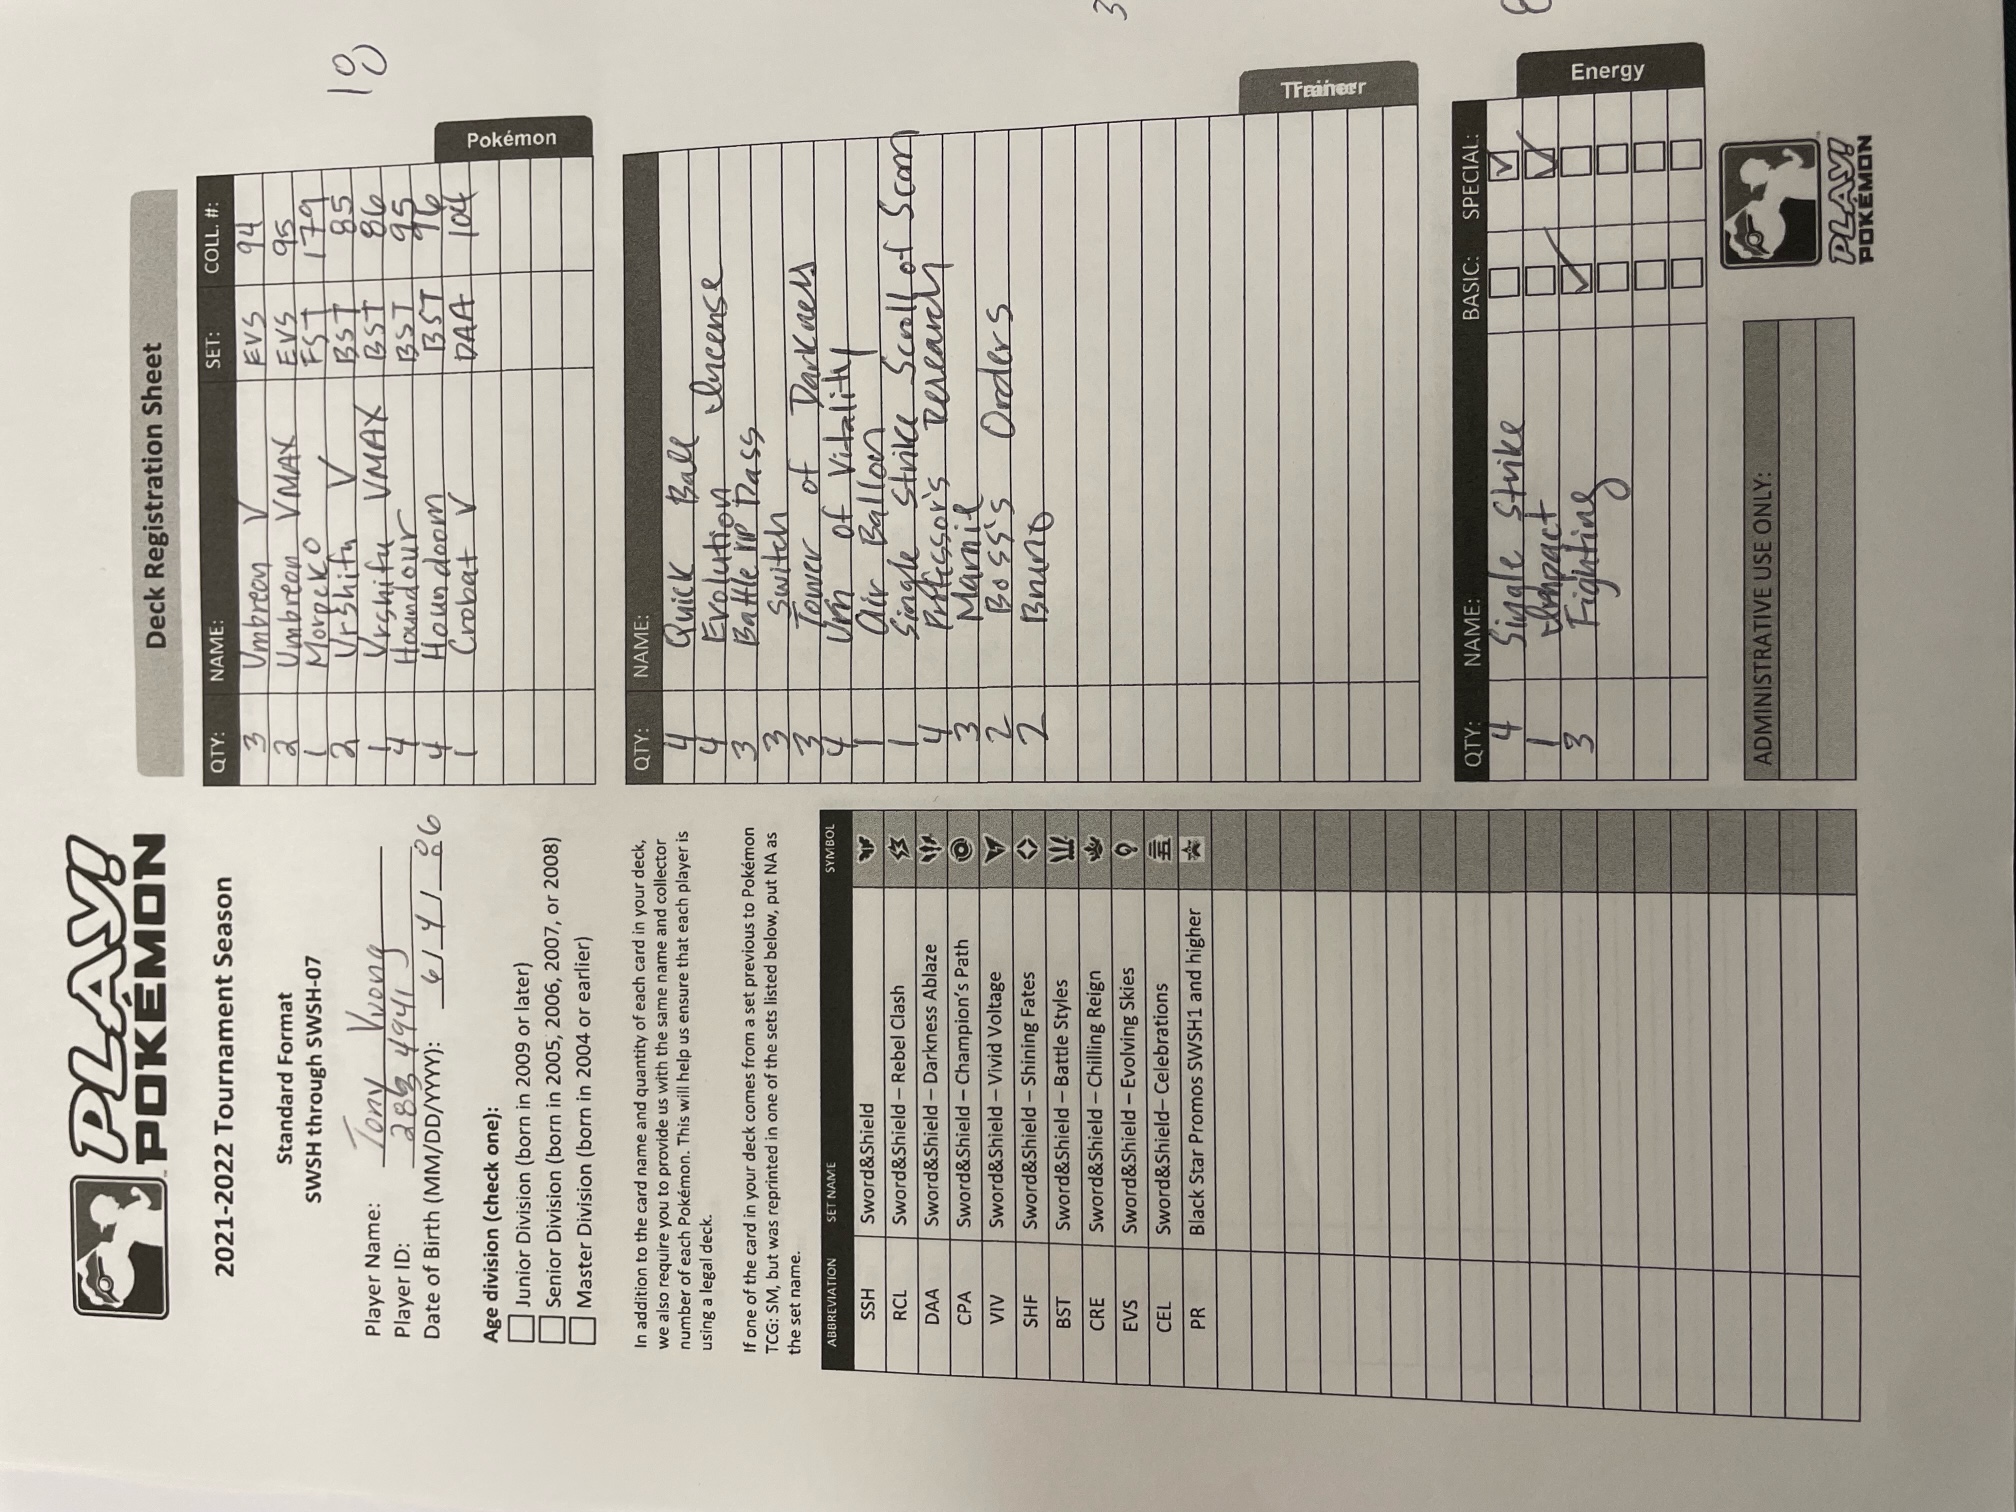 PLAY!
POKÉMON
2021-2022 Tournament Season
Standard Format
SWSH through SWSH-07
Player Name: Tony Vuong
Player ID: 2834941
Date of Birth (MM/DD/YYYY): 6/4/86
Age division (check one):
Junior Division (born in 2009 or later)
Senior Division (born in 2005, 2006, 2007, or 2008)
Master Division (born in 2004 or earlier)
In addition to the card name and quantity of each card in your deck,
we also require you to provide us with the same name and collector
number of each Pokémon. This will help us ensure that each player is
using a legal deck.
If one of the card in your deck comes from a set previous to Pokémon
TCG: SM, but was reprinted in one of the sets listed below, put NA as
the set name.
ABBREVIATION SET NAME SYMBOL
SSH Sword&Shield
RCL Sword&Shield – Rebel Clash
DAA Sword&Shield – Darkness Ablaze
CPA Sword&Shield – Champion's Path
VIV Sword&Shield – Vivid Voltage
SHF Sword&Shield – Shining Fates
BST Sword&Shield – Battle Styles
CRE Sword&Shield – Chilling Reign
EVS Sword&Shield – Evolving Skies
CEL Sword&Shield– Celebrations
PR Black Star Promos SWSH1 and higher
Deck Registration Sheet
QTY: NAME: SET: COLL. #:
3 Umbreon V EVS 94
2 Umbreon VMAX EVS 95
1 Morpeko FST 179
2 Urshifu V BST 85
1 Urshifu VMAX BST 86
4 Houndour BST 95
4 Houndoom BST 96
1 Crobat V DAA 104
18
Pokémon
QTY: NAME:
4 Quick Ball
4 Evolution Incense
3 Battle VIP Pass
3 Switch
3 Tower of Darkness
4 Urn of Vitality
1 Air Balloon
1 Single Strike Scroll of Scorn
4 Professor's Research
3 Marnie
2 Boss's Orders
2 Bruno
3
Trainer
QTY: NAME: BASIC: SPECIAL:
4 Single Strike
1 Impact
3 Fighting
Energy
ADMINISTRATIVE USE ONLY:
PLAY!
POKÉMON